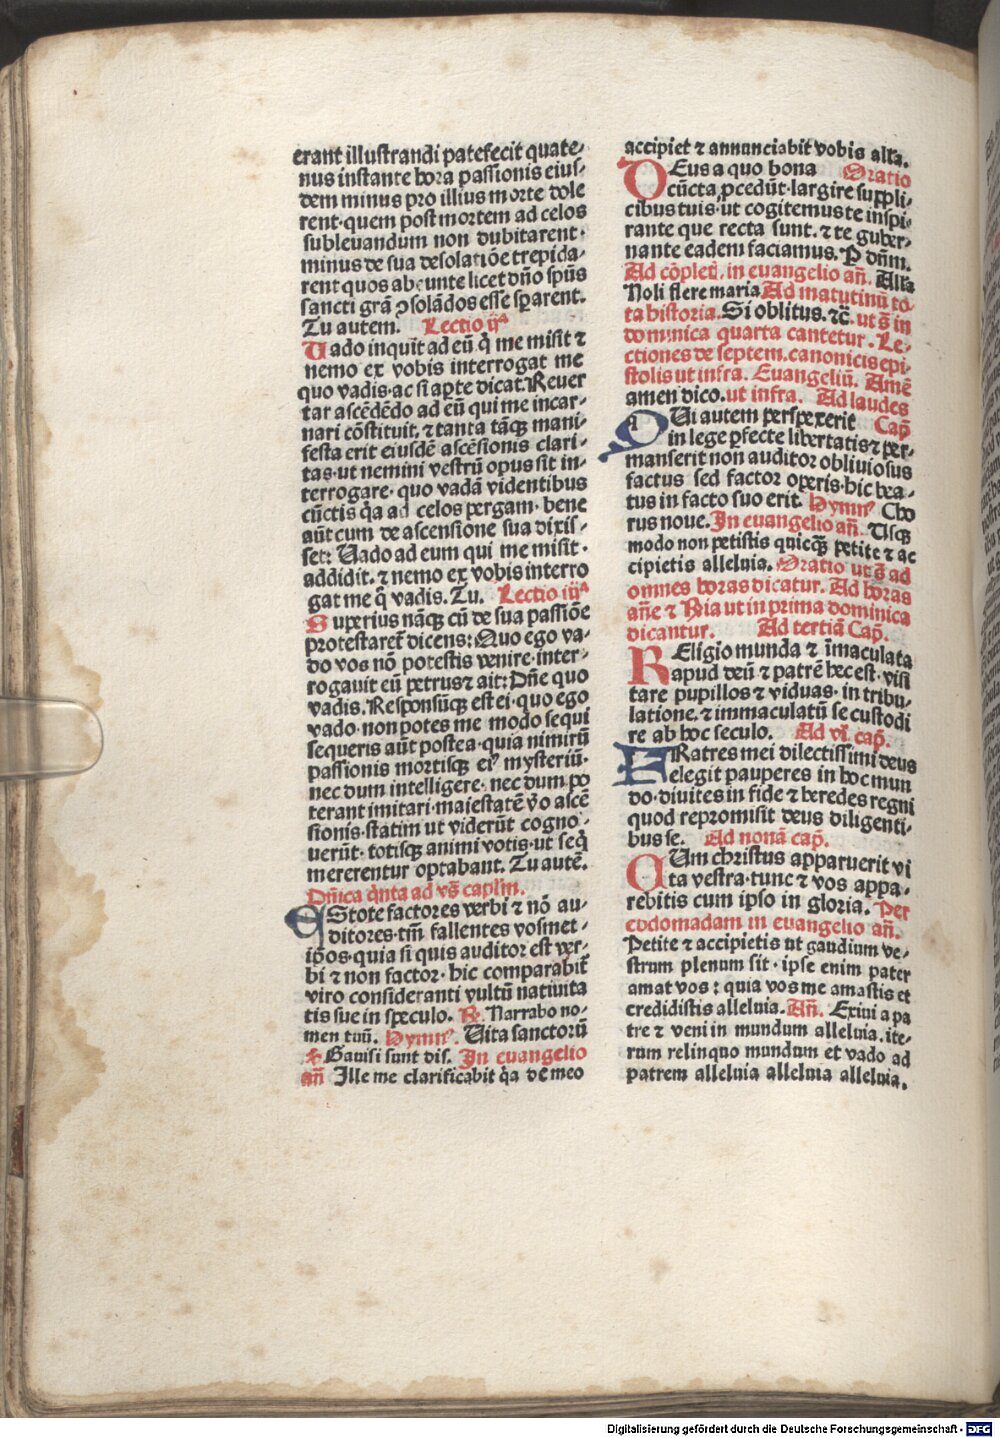 erant illustrandi patefecit quate-
nus instante hora passionis eius-
dem minus pro illius morte dole
rent·quem post mortem ad celos
subleuandum non dubitarent·
minus de sua desolatiõe trepida-
rent quos abeunte licet dño spũs
sancti grã ꝯsolãdos esse sꝑarent.
Tu autem. Lectio ijª
Uado inquit ad eũ q̇ me misit ⁊
nemo ex vobis interrogat me
quo vadis·ac si aꝑte dicat. Reuer
tar ascẽdẽdo ad eũ qui me incar-
nari cõstituit. ⁊ tanta tãqꝫ mani-
festa erit eiusdẽ ascẽsionis clari-
tas·ut nemini vestrũ opus sit in-
terrogare·quo vadã videntibus
cũctis q̃a ad celos pergam·bene
aũt cum de ascensione sua dixis-
set: Uado ad eum qui me misit·
addidit. ⁊ nemo ex vobis interro
gat me q̃ vadis. Tu. Lectio iijª
Superius nãqꝫ cũ de sua passiõe
protestaret̃ dicens: Quo ego va-
do vos nõ potestis venire·inter-
rogauit eũ petrus ⁊ ait: Dñe quo
vadis. Responsũqꝫ est ei·quo ego
vado·non potes me modo sequi
sequeris aũt postea·quia nimirũ
passionis mortisqꝫ ei⁹ mysteriũ·
nec dum intelligere·nec dum po
terant imitari·maiestatẽ v̊o ascẽ
sionis·statim ut viderũt cogno-
uerũt·totisqꝫ animi votis·ut seq̇
mererentur optabant. Tu autẽ.
Dñica q̇nta ad vs̃ caplm̃.
EStote factores verbi ⁊ nõ au-
ditores·tm̃ fallentes vosmet-
ip̃os·quia si quis auditor est ver-
bi ⁊ non factor·hic comparabit̃
viro consideranti vultũ natiuita
tis sue in speculo. ℟. Narrabo no-
men tuũ. Hymn⁹. Uita sanctorũ
℣ Gauisi sunt dis. In euangelio
añ Ille me clarificabit q̃a de meo
accipiet ⁊ annunciabit vobis alla.
DEus a quo bona Oratio
cũcta ꝓcedũt·largire suppli-
cibus tuis·ut cogitemus te inspi-
rante que recta sunt. ⁊ te guber-
nante eadem faciamus. P dñm.
Ad cõpletũ. in euangelio añ. Alla
Noli flere maria Ad matutinũ to-
ta historia. Si oblitus. ⁊c̃. ut s̃ in
dominica quarta cantetur. Le-
ctiones de septem. canonicis epi-
stolis ut infra. Euangeliũ. Amẽ
amen dico. ut infra. Ad laudes
QUi autem perspexerit Cap̃
in lege ꝑfecte libertatis ⁊ per-
manserit non auditor obliuiosus
factus sed factor operis·hic bea-
tus in facto suo erit. Hymn⁹ Cho
rus noue. In euangelio añ. Usqꝫ
modo non petistis quicqꝫ̃ petite ⁊ ac
cipietis alleluia. Oratio ut s̃ ad
omnes horas dicatur. Ad horas
añe ⁊ Ria ut in prima dominica
dicantur. Ad tertiã Cap̃.
REligio munda ⁊ ĩmaculata
apud deũ ⁊ patrẽ hec est·visi
tare pupillos ⁊ viduas·in tribu-
latione. ⁊ immaculatũ se custodi
re ab hoc seculo. Ad vĩ. cap̃.
FRatres mei dilectissimi deus
elegit pauperes in hoc mun
do·diuites in fide ⁊ heredes regni
quod repromisit deus diligenti-
bus se. Ad nonã cap̃.
CUm christus apparuerit vi
ta vestra·tunc ⁊ vos appa-
rebitis cum ipso in gloria. Per
eodomadam in euangelio añ.
Petite ⁊ accipietis ut gaudium ve-
strum plenum sit·ipse enim pater
amat vos: quia vos me amastis et
credidistis alleluia. Añ. Exiui a pa
tre ⁊ veni in mundum alleluia. ite-
rum relinquo mundum et vado ad
patrem alleluia alleluia alleluia.
Digitalisierung gefördert durch die Deutsche Forschungsgemeinschaft - DFG